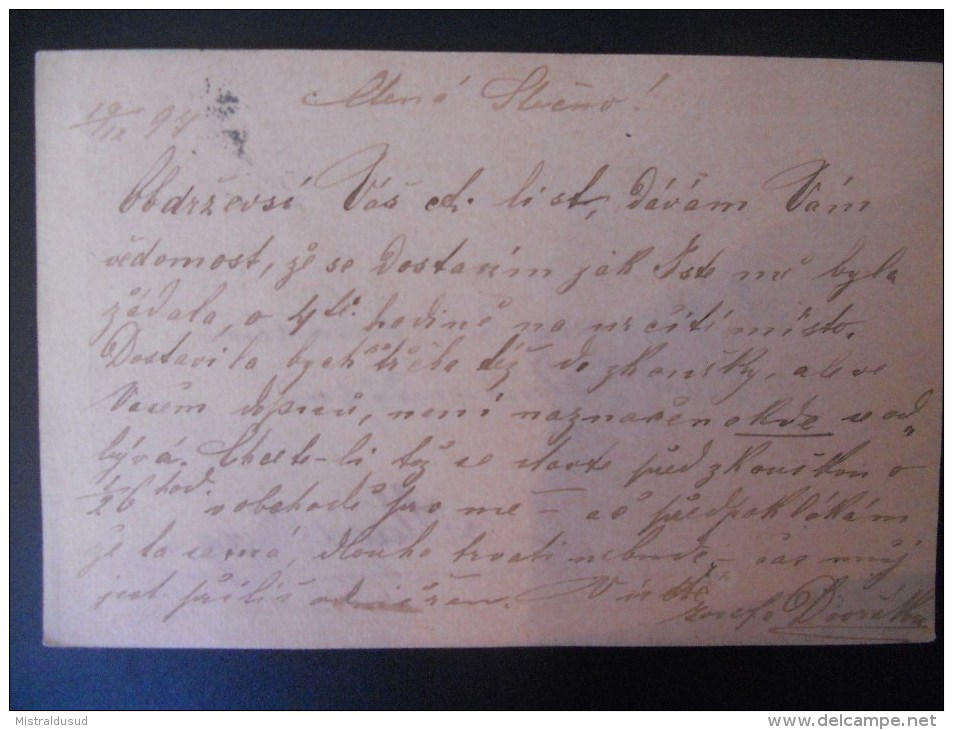 Ctěná Slečno!
19/12 94
Obdrževsi Váš ct. list, dávám Vám
vědomost, že se dostavím jak Jste mě byla
žádala, o 4té hodině na určití místo.
Dostavila bych se třeba též do zkoušky, ale ve
Vašem dopisu, není naznačeno kde se od„
bývá. Chcete-li též se stavte před zkouškou o
1/2 6 hod. v obchodě pro mě – ač předpokládám
že ta samá, dlouho trvati nebude – čas můj
jest příliš odměřen. V úctě
Dvořák
Mistraldusud
www.delcampe.net